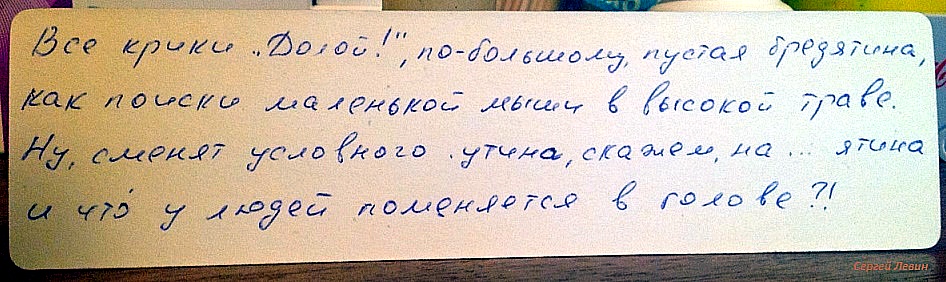 Все крики „Долой!", по-большому, пустая бредятина,
как поиски маленькой мыши в высокой траве.
Ну, сменят условного .утина, скажем, на ... ятина
и что́ у людей поменяется в голове?!
Сергей Левин